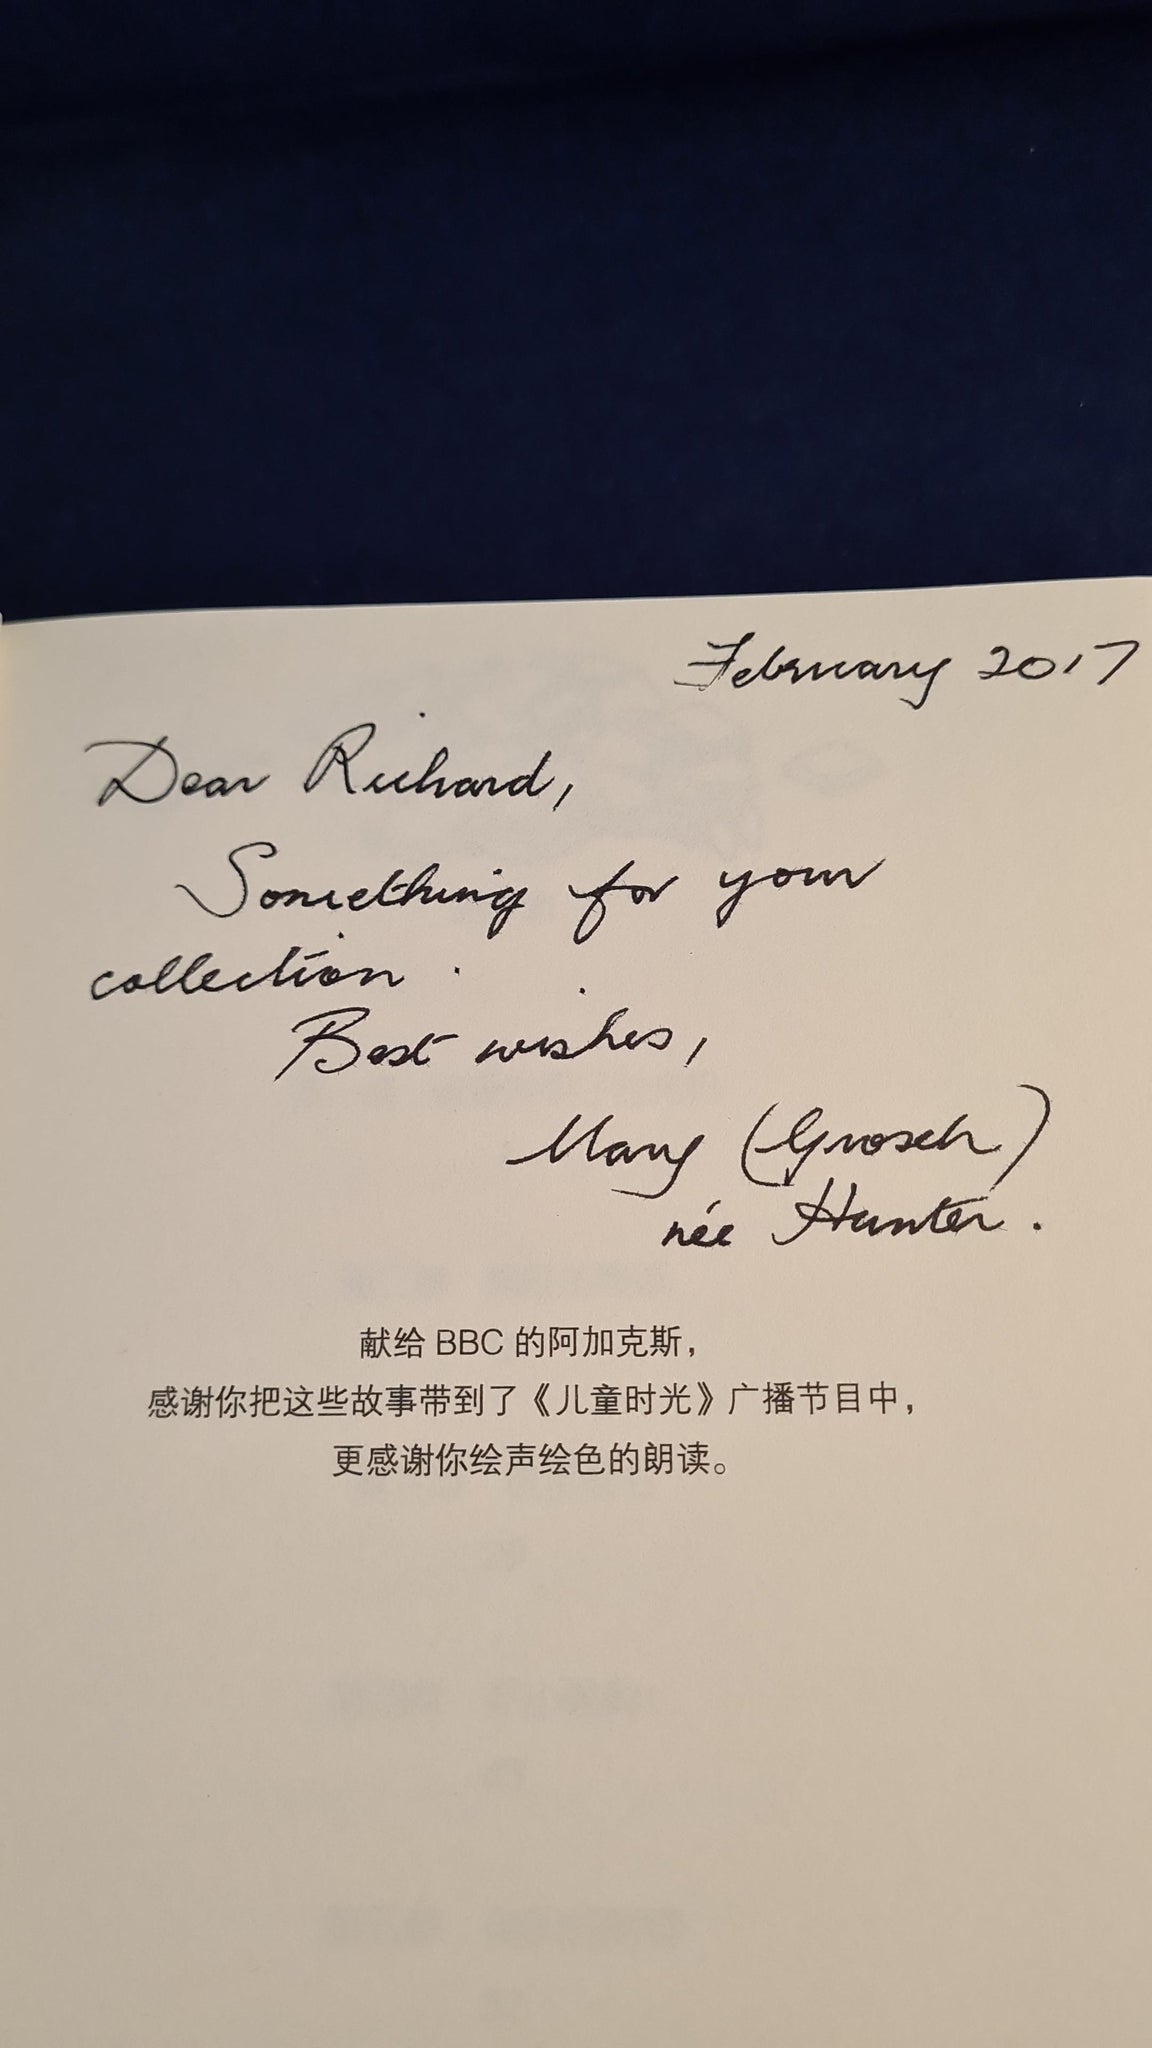 February 2017
Dear Richard,
Something for your
collection.
Best wishes,
Mary (Grosch)
née Hunter.
献给 BBC 的阿加克斯，
感谢你把这些故事带到了《儿童时光》广播节目中，
更感谢你绘声绘色的朗读。